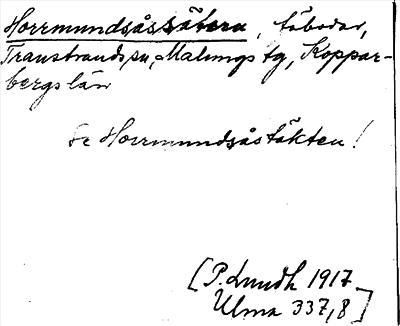 Horrmundsåssätern, fäbodar,
Transtrands sn, Malungs tg, Koppar-
bergs län
Se Horrmundsåstäkten!
[P. Lundh 1917
Ulma 337,8]